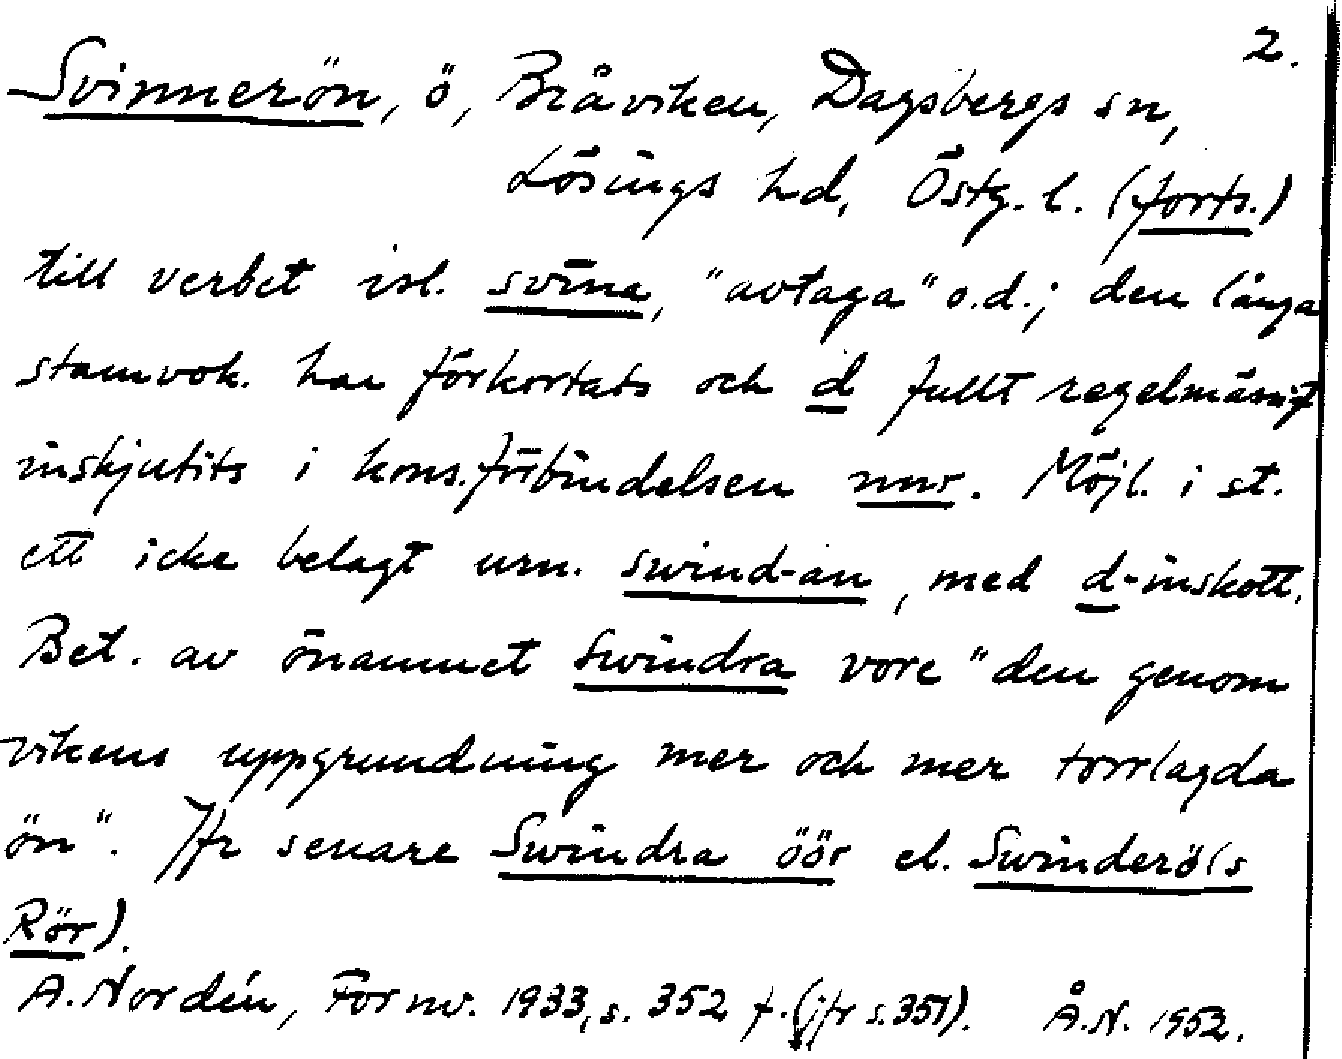 2.
Svinnerön, ö, Bråviken, Dagsbergs sn,
Lösings hd, Östg. l. (forts.)
till verbet isl. svína, "avtaga" o.d.; den långa
stamvok. har förkortats och d fullt regelmässigt
inskjutits i kons.förbindelsen nnr. Möjl. i st.
ett icke belagt urn. swind-an, med d-inskott.
Bet. av önamnet Swindra vore "den genom
vikens uppgrundning mer och mer torrlagda
ön". Jfr senare Swindra öör el. Swinderö(s
Rör).
A. Nordén, Fornv. 1933, s. 352 f. (jfr s. 351). Å.N. 1952.